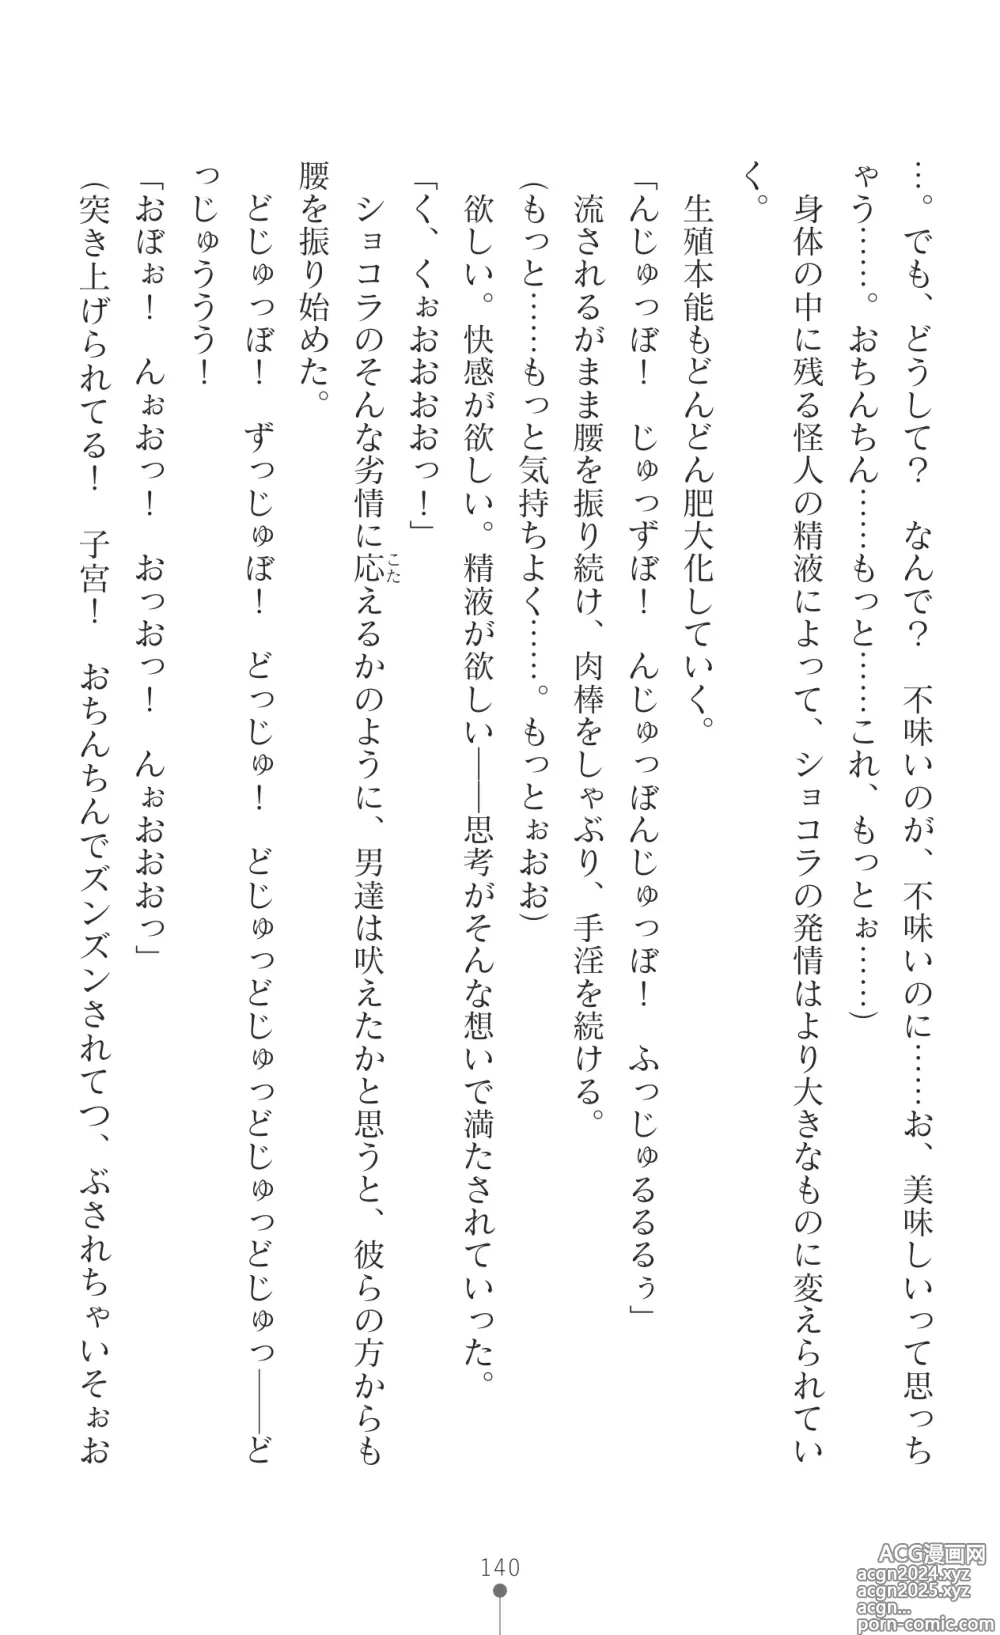 …。でも、どうして？　なんで？　不味いのが、不味いのに……お、美味しいって思っち
ゃう……。おちんちん……もっと……これ、もっとぉ……）
身体の中に残る怪人の精液によって、ショコラの発情はより大きなものに変えられてい
く。
生殖本能もどんどん肥大化していく。
「んじゅっぼ！　じゅっずぼ！　んじゅっぼんじゅっぼ！　ふっじゅるるるぅ」
流されるがまま腰を振り続け、肉棒をしゃぶり、手淫を続ける。
（もっと……もっと気持ちよく……。もっとぉおお）
欲しい。快感が欲しい。精液が欲しい――思考がそんな想いで満たされていった。
「く、くぉおおおおっ！」
ショコラのそんな劣情に応えるかのように、男達は吠えたかと思うと、彼らの方からも
こた
腰を振り始めた。
どじゅっぼ！　ずっじゅぼ！　どっじゅ！　どじゅっどじゅっどじゅっどじゅっ――ど
っじゅううう！
「おぼぉ！　んぉおっ！　おっおっ！　んぉおおおっ」
（突き上げられてる！　子宮！　おちんちんでズンズンされてつ、ぶされちゃいそぉお
140
ACG漫画网
acgn2024.xyz
acgn2025.xyz
acgn...
porn-comic.com